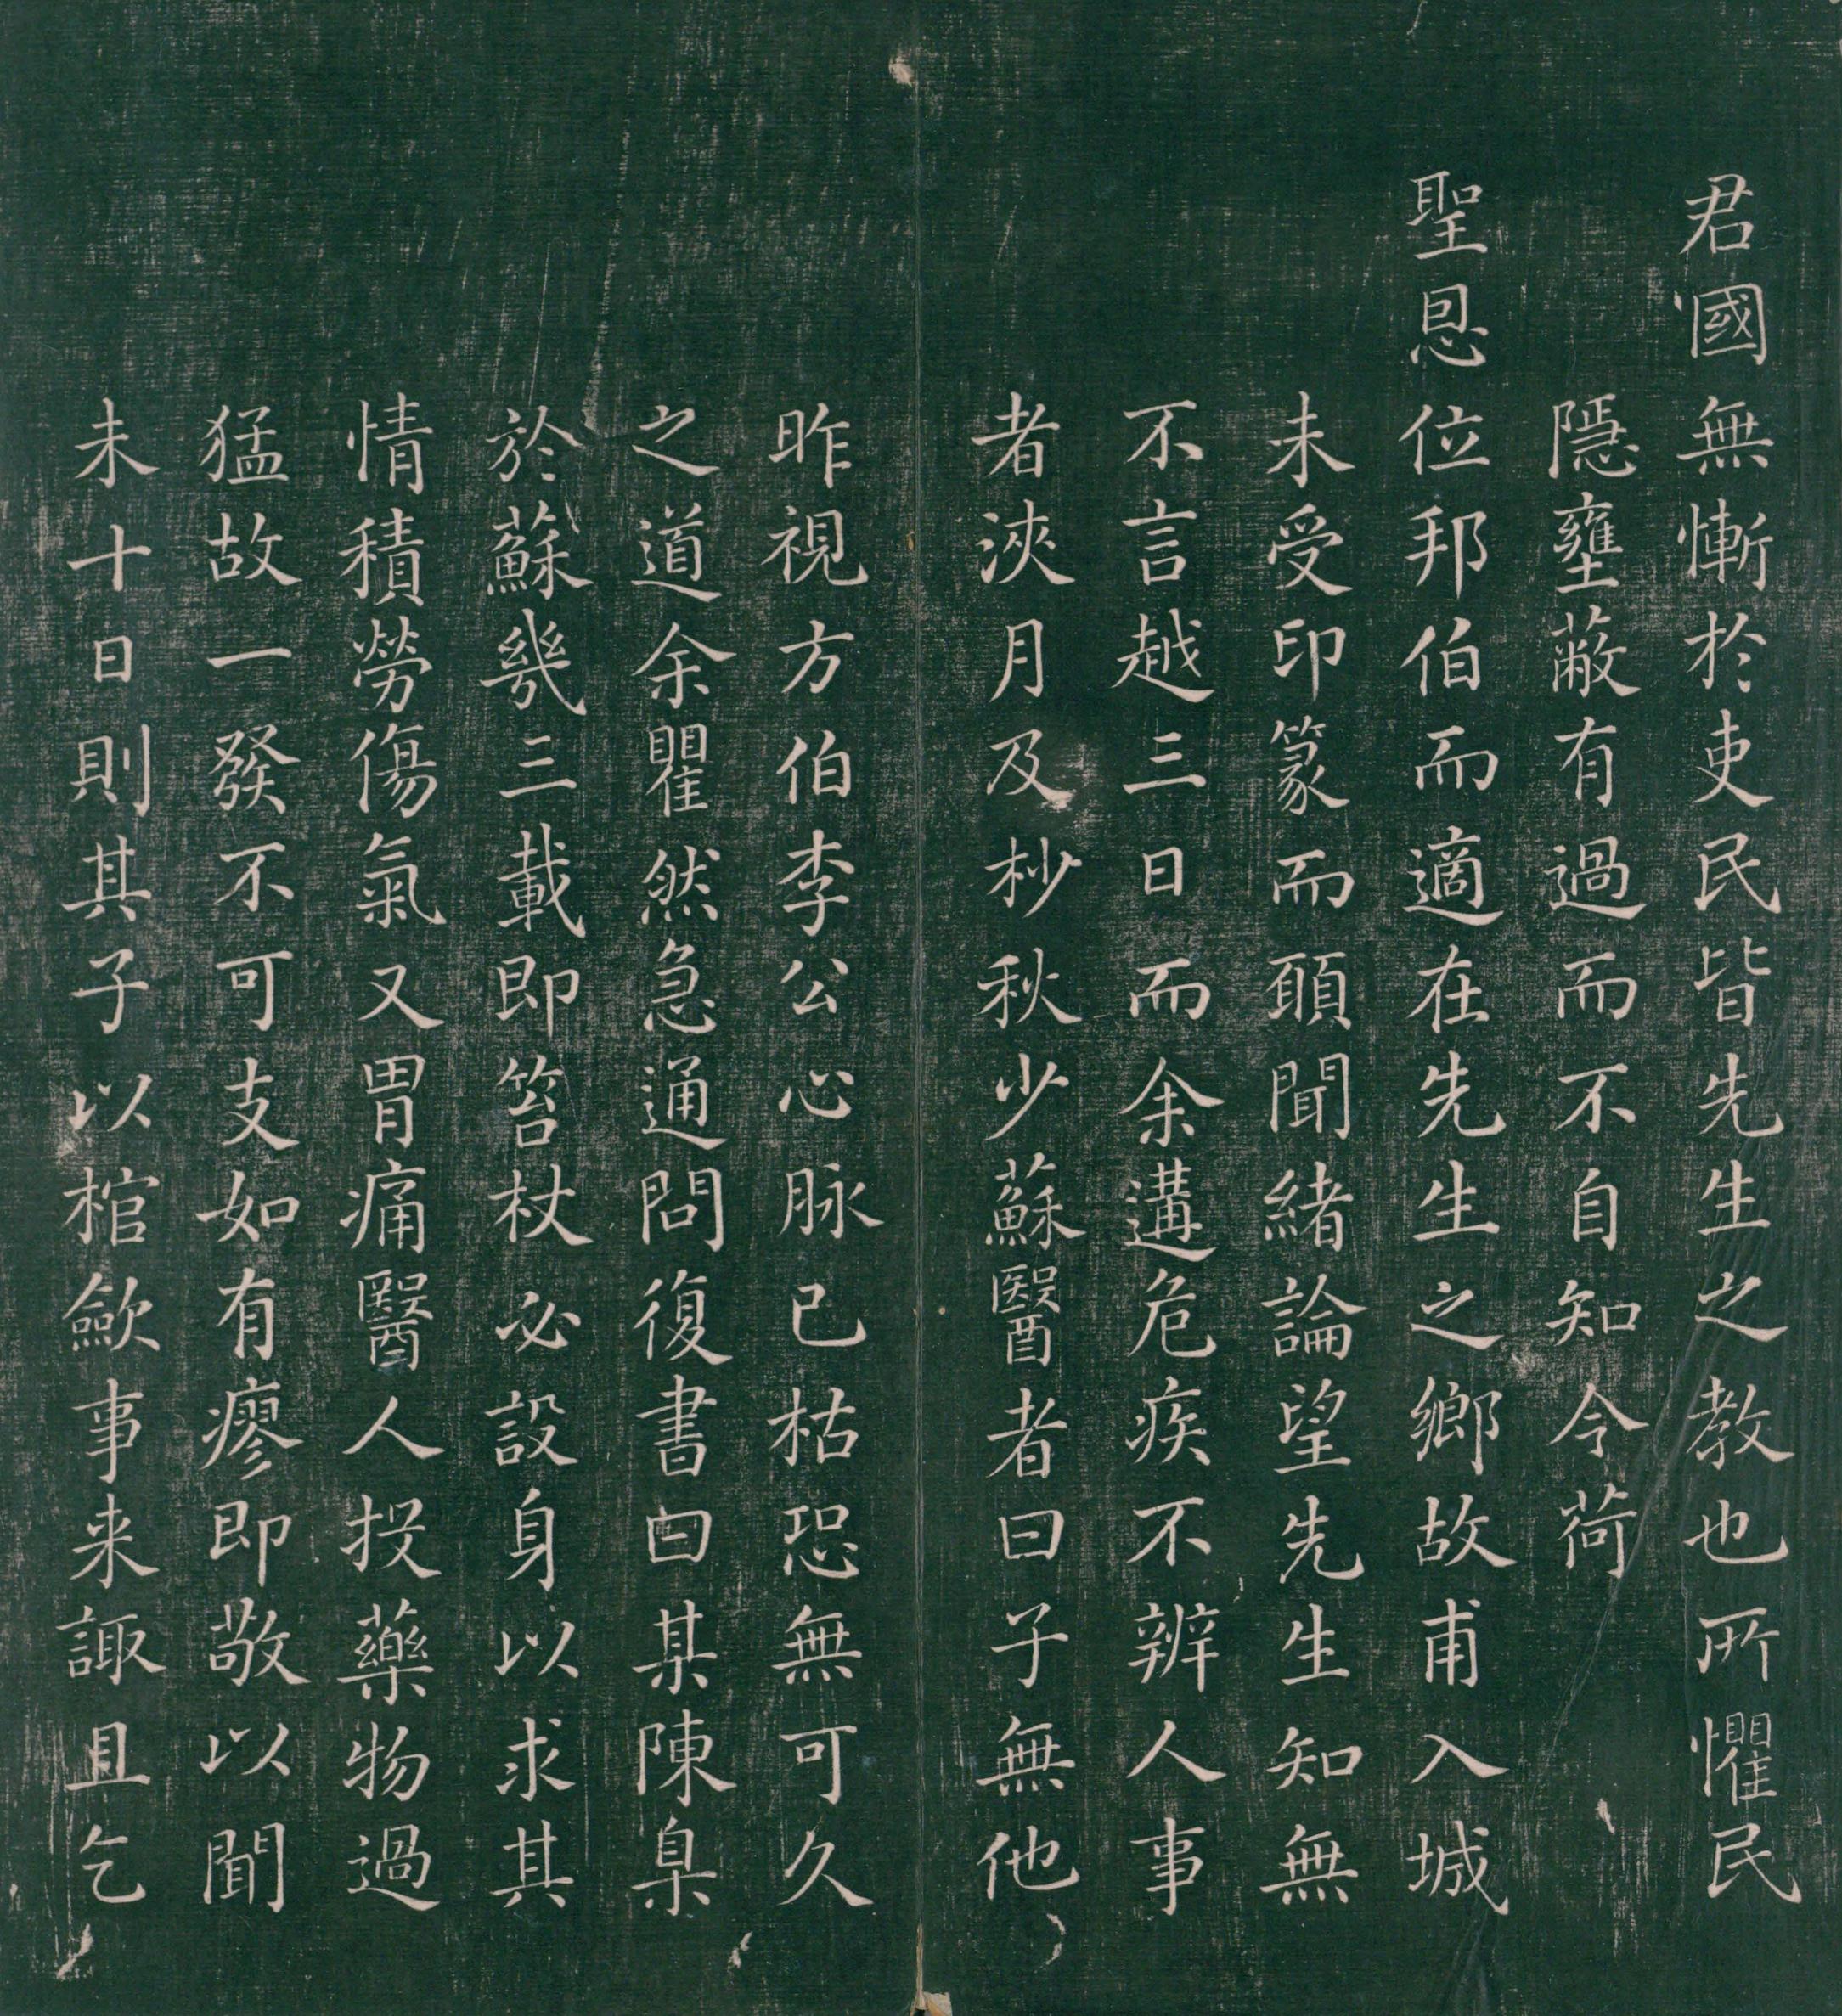 君國無慚於吏民皆先生之教也所懼民
隱壅蔽有過而不自知今荷
聖恩位邦伯而適在先生之鄉故甫入城
未受印篆而願聞緒論望先生知無
不言越三日而余遘危疾不辨人事
者浹月及杪秋少蘇醫者曰子無他
昨視方伯李公心脉已枯恐無可久
之道余瞿然急通問復書曰某陳臬
於蘇幾三載即笞杖必設身以求其
情積勞傷氣又胃痛醫人投藥物過
猛故一發不可支如有瘳即敬以聞
未十日則其子以棺歛事来諏且乞